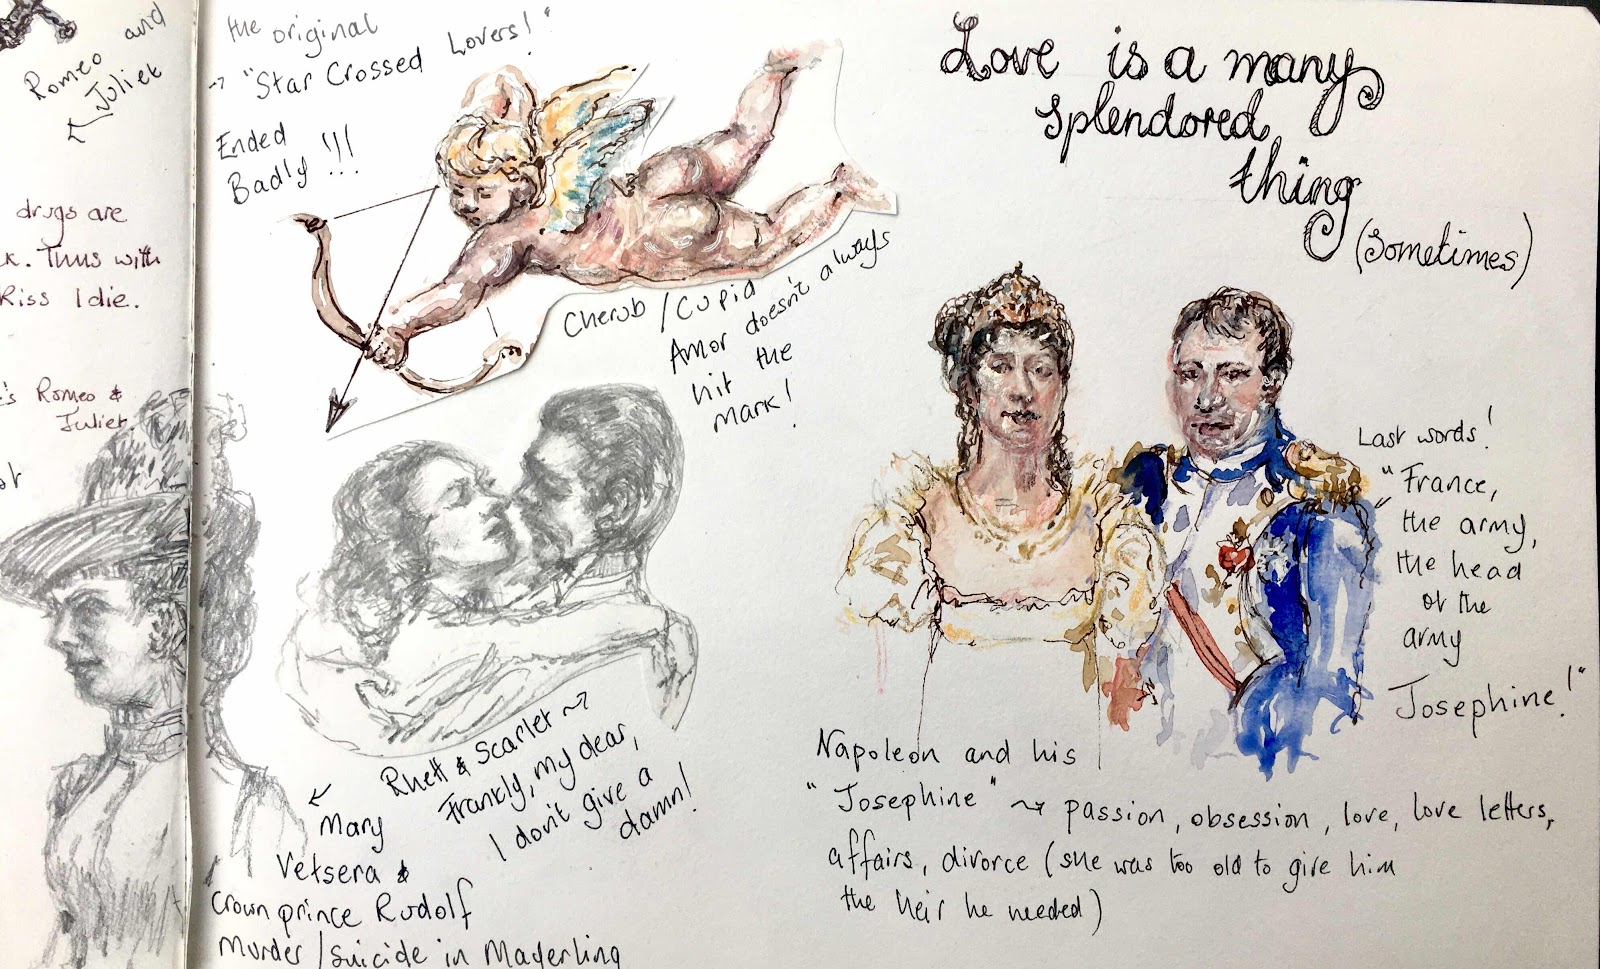 Romeo and
Juliet
drugs are
k. Thus with
Kiss I die.
's Romeo &
Juliet.
the original
"Star Crossed Lovers!"
Ended
Badly !!!
Cherub / Cupid
Amor doesn't always
hit the
mark!
Rhett & Scarlet
Frankly, my dear,
I don't give a
damn!
Mary
Vetsera &
Crown prince Rudolf
Murder/suicide in Mayerling
Love is a many
splendored
thing
(sometimes)
Last words!
"France,
the army,
the head
of the
army
Josephine!"
Napoleon and his
"Josephine" passion, obsession, love, love letters,
affairs, divorce (she was too old to give him
the heir he needed)